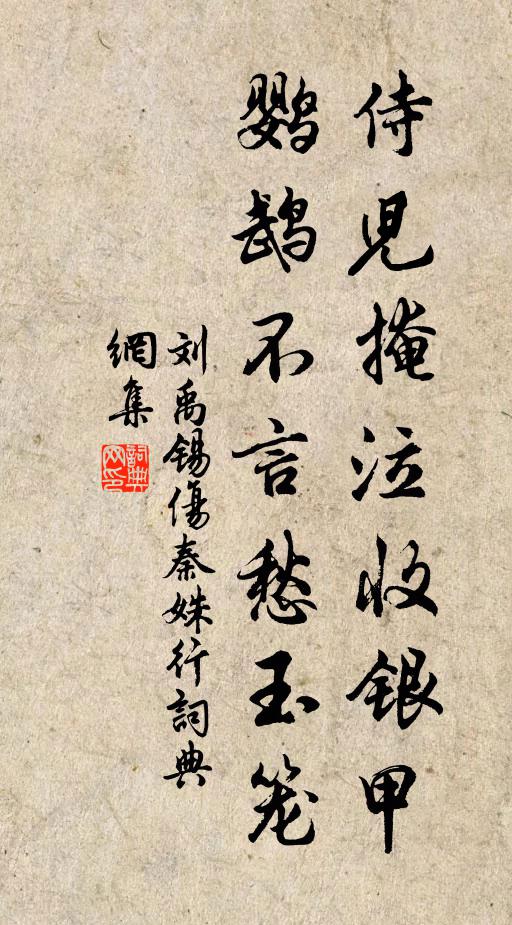 侍児掩泣收银甲
鹦鹉不言愁玉笼
刘禹锡傷秦姝行詞典
網集
詞典
网印